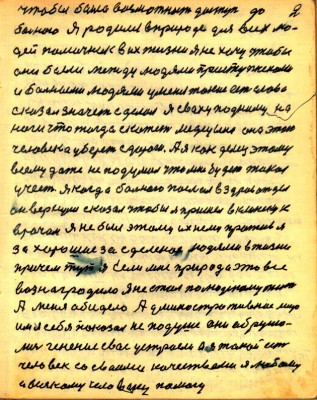 чтобы была возможность доступ до 2
больного Я родился в природе для всех лю
дей помочник в их жизни я не хочу чтобы
они были между людями приступником
и больными людями у меня такие ест слова
сказал значет сделал Я сваху подниму на
ноги что тогда скажет медицина она этого
человека уберет с дороги. А я как делу этому
всему даже не подумал что мы будет такая
учест Я когда больного послал в здравотдел
он вернулся сказал чтобы я пришел в клинику к
врачам Я не был этому их не против я
за хорошие за сделаное людями в жизни
причем тут я Если мне природа это все
вознагродило Я не стал по людскому жить
А меня обидело Администротивное ли
ця себя показал не подуше они обрушо
лись гонение свае устраеле а я такой ест
человек со своими качествами я любому
и всякому человеку помогу